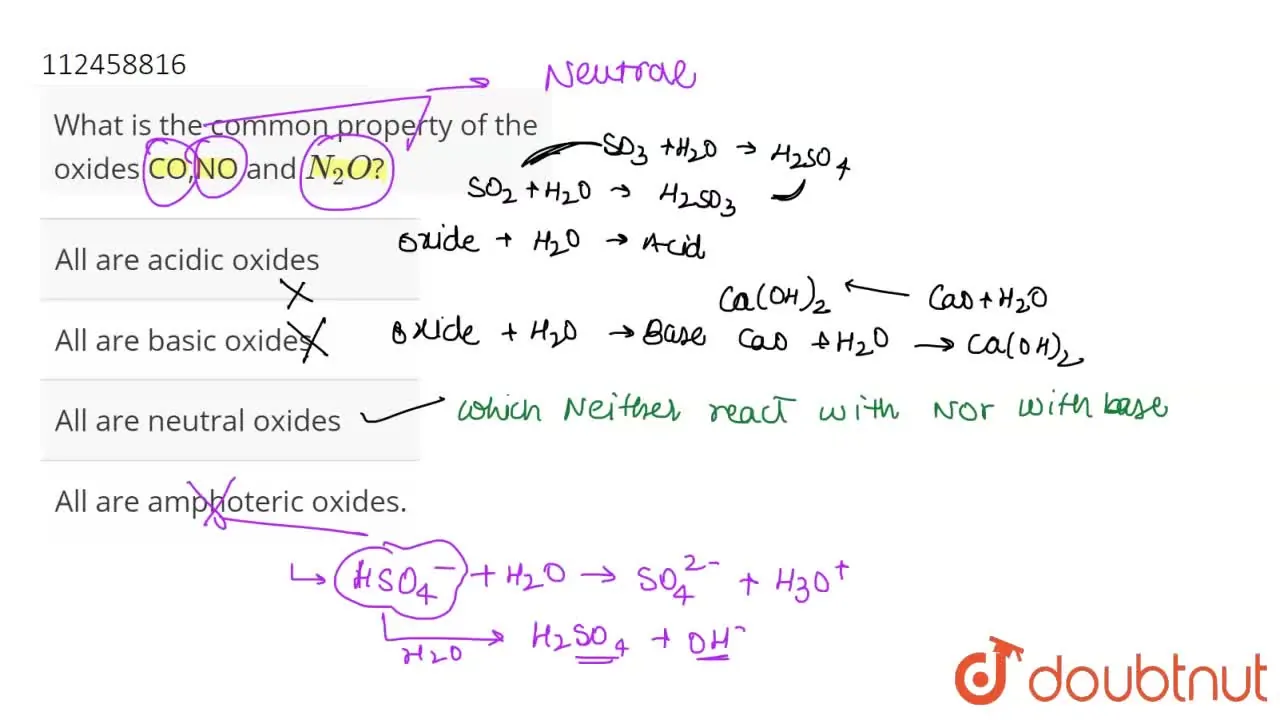 112458816
Neutral
What is the common property of the
oxides CO,NO and N₂O?
SO₃ + H₂O → H₂SO₄
SO₂ + H₂O → H₂SO₃
Oxide + H₂O → Acid
All are acidic oxides
Ca(OH)₂ ← CaO + H₂O
Oxide + H₂O → Base CaO + H₂O → Ca(OH)₂
All are basic oxides
All are neutral oxides
which Neither react with Nor with base
All are amphoteric oxides.
HSO₄⁻ + H₂O → SO₄²⁻ + H₃O⁺
H₂O → H₂SO₄ + OH⁻
doubtnut